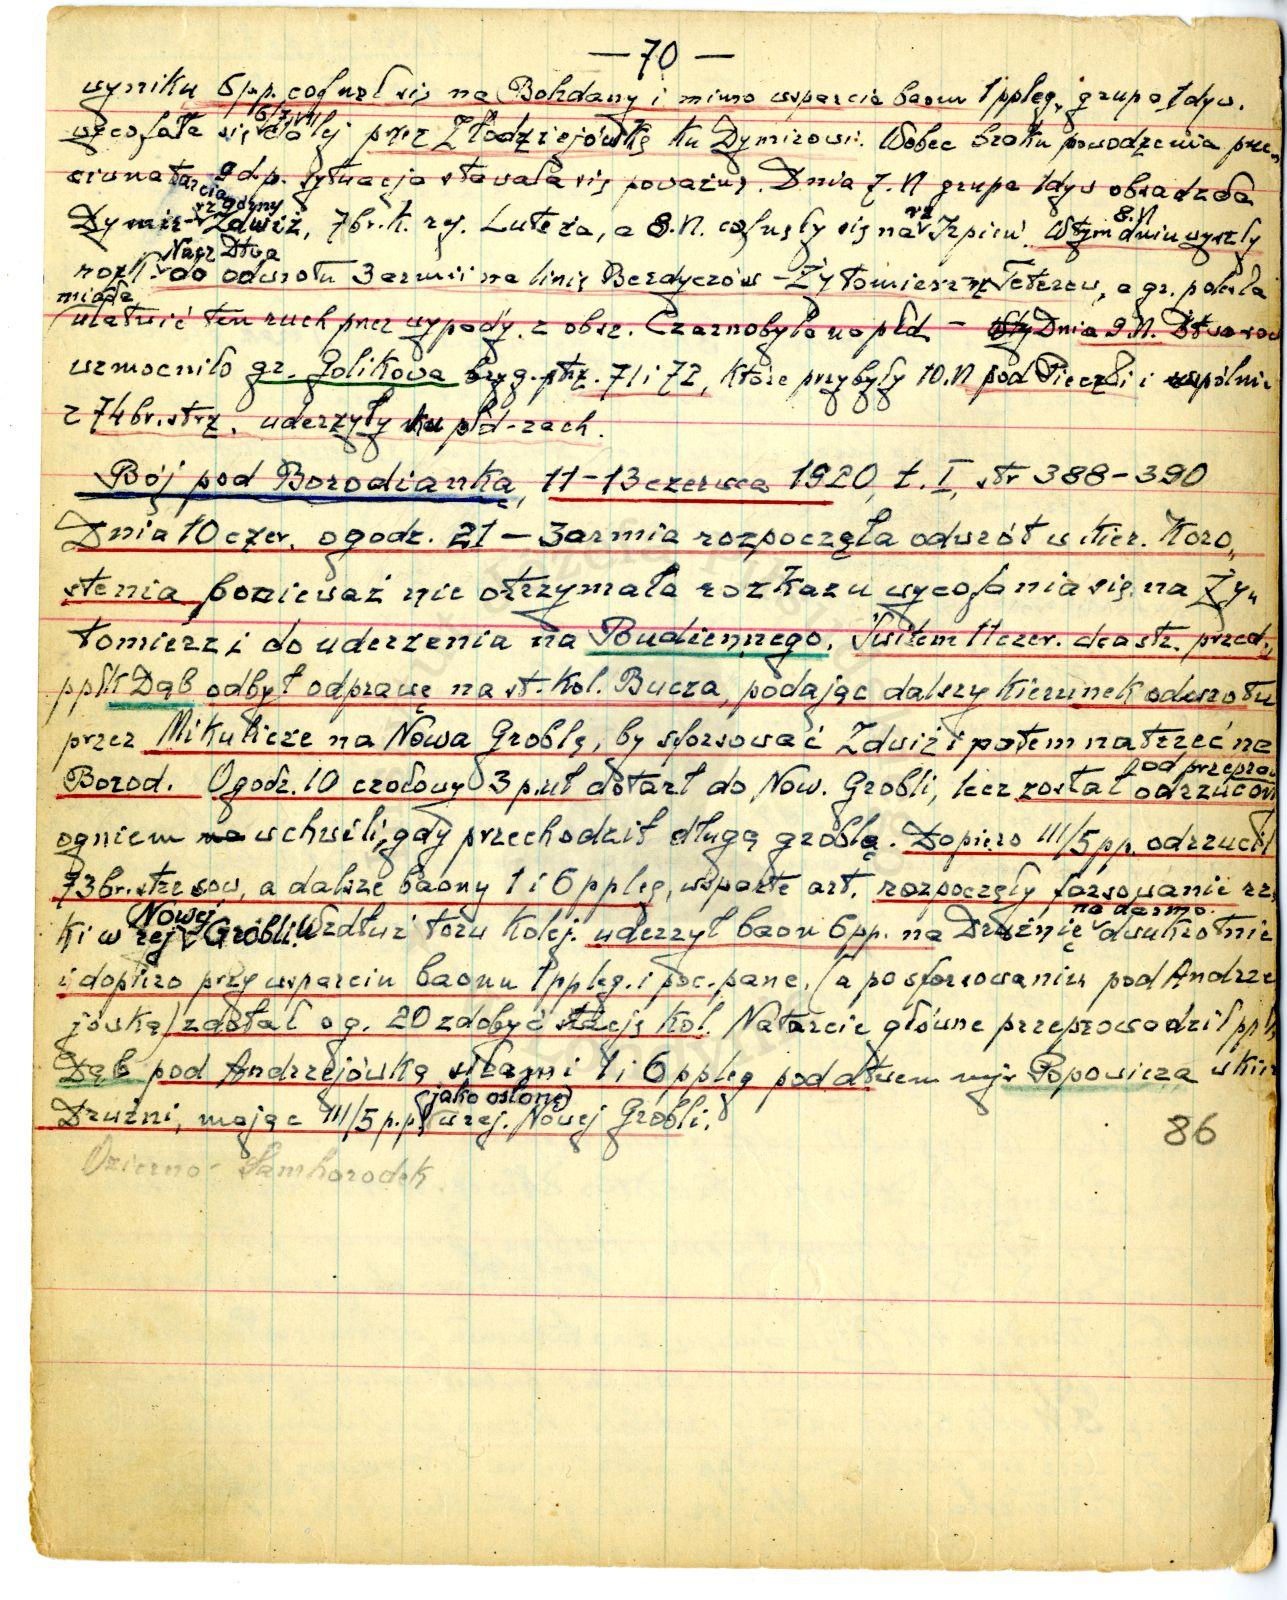 — 70 —
wyniku 5 p.p. cofnął się na Bohdany i mimo wsparcia baonu 1 ppleg, grupa 1 dyw.
wycofała się 6/7.VI dalej przez Złodziejówkę ku Dymirowi. Wobec braku powodzenia prze-
ciwnatarcia gdp. sytuacja stawała się poważną. Dnia 7.VI grupa 1 dyw obsadziła
Dymir - rz górny Zdwiż, 7 br.k. rej. Luteża, a 8.VI. cofnęły się na rz Irpień. W tym dniu 8.VI wyszły
rozk Nacz Dtwa do odwrotu 3 armii na linię Berdyczów - Żytomierz - rz Teterew, a gr. połudn
miała ułatwić ten ruch przez wypady z obsz. Czarnobyla na płd - Dnia 9.VI. Dtwo sow
wzmocniło gr. Golikowa bryg. strz. 71 i 72, które przybyły 10.VI pod Pieczki i wspólnie
z 74 br. strz. uderzyły ku płd-zach.
Bój pod Borodianką, 11-13 czerwca 1920, t. I, str 388-390
Dnia 10 czer. o godz. 21 - 3 armia rozpoczęła odwrót w kier. Koro-
stenia, ponieważ nie otrzymała rozkazu wycofania się na Ży-
tomierz i do uderzenia na Budiennego. Świtem 11 czer. dca str. przed.,
ppłk Dąb odbył odprawę na st. kol. Bucza, podając dalszy kierunek odwrotu
przez Mikulicze na Nową Groblę, by sforsować Zdwiż i potem natrzeć na
Borod. O godz. 10 czołowy 3 p.uł dotarł do Now. Grobli, lecz został odrzucony od przepraw
ogniem w chwili, gdy przechodził długą groblą. Dopiero III/5 pp. odrzucił
73 br. strz sow, a dalsze baony 1 i 6 ppleg, wsparte art. rozpoczęły forsowanie rze
ki w rej Nowej Grobli. Wzdłuż toru kolej. uderzył baon 6 pp. na Drużnię na darmo dwukrotnie
i dopiero przy wsparciu baonu 1 ppleg. i poc. panc. (a po sforsowaniu pod Andrze
jówką) zdołał o g. 20 zdobyć stację kol. Natarcie główne przeprowadził ppłk
Dąb pod Andrzejówką siłami 1 i 6 ppleg pod dtwem mjr Popowicza w kier
Drużni, mając III/5 p.p. (jako osłonę) w rej. Nowej Grobli.
86
Ozierno - Samhorodek.